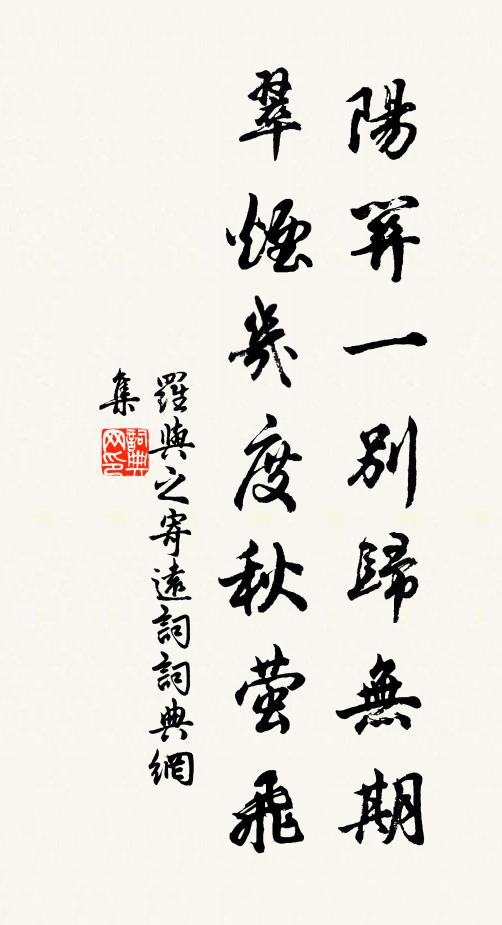 陽關一別歸無期
翠煙幾度秋螢飛
羅與之寄遠詞詞典網
集
詞典
网印